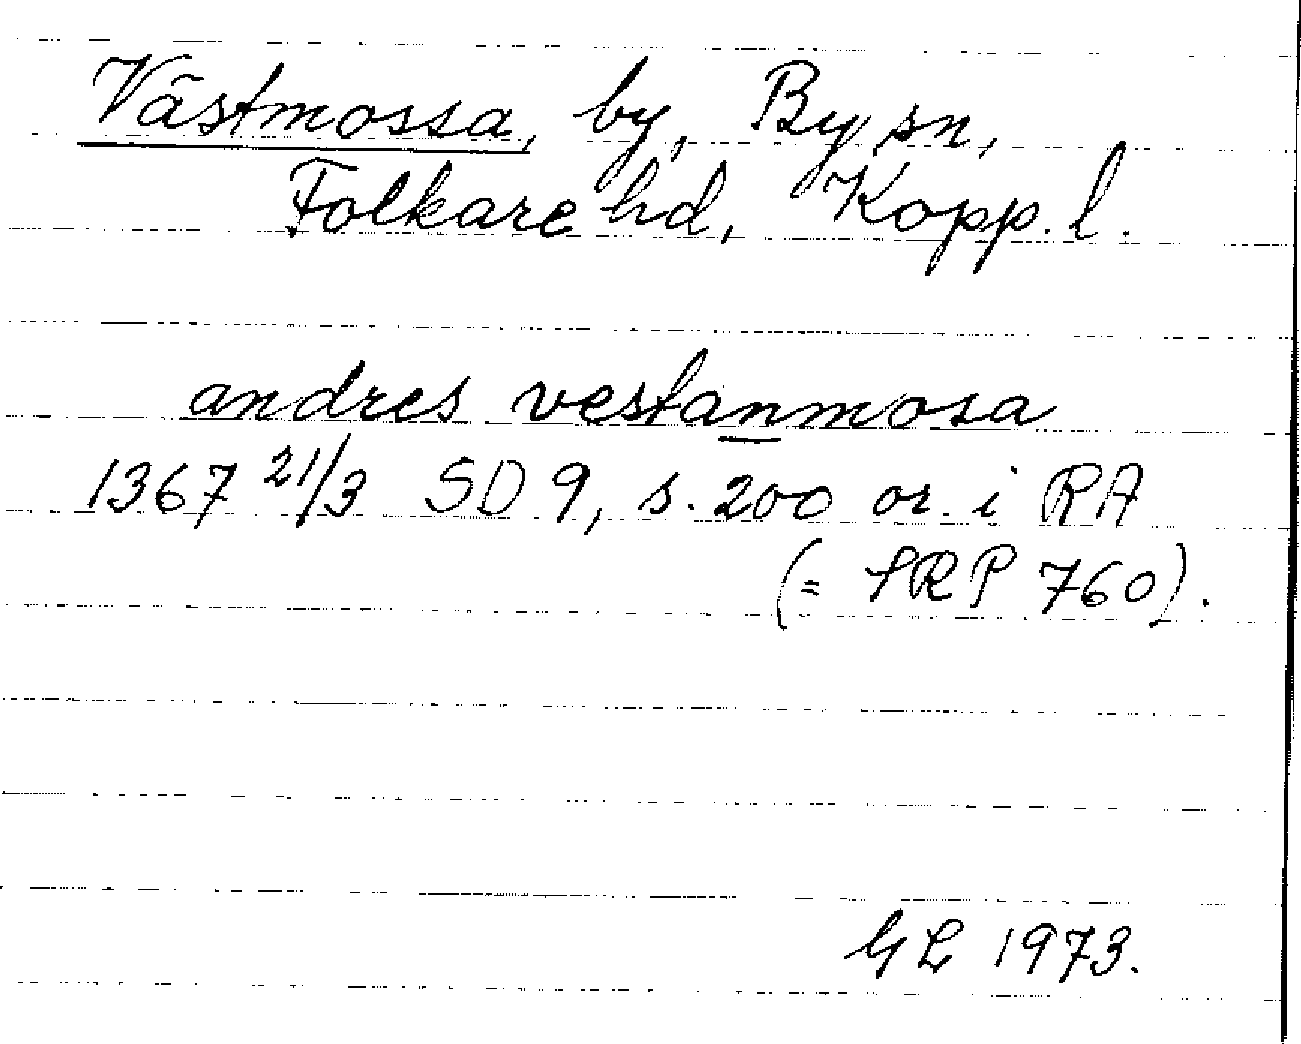 Västmossa, by, By sn,
Folkare hd, Kopp. l.
andres vestanmosa
1367 21/3 SD 9, s. 200 or. i RA
(= SRP 760).
GL 1973.